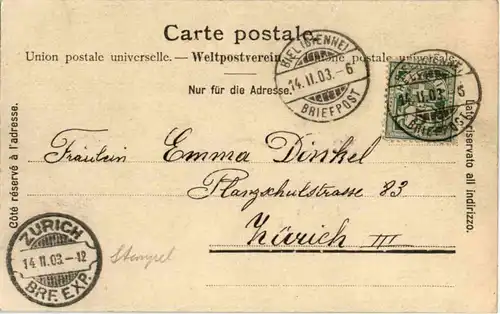 Carte postale.
Union postale universelle. — Weltpostverein. postale universale.
Nur für die Adresse.
Côté réservé à l'adresse.
Lato riservato all indirizzo.
BIEL (BIENNE)
14.II.03.-6
BRIEFPOST
14.II.03. 6
Fräulein Emma Dinkel
Plangschulstrasse 83
Zürich III
ZÜRICH
14.II.03.-12
BRF. EXP.
Stempel